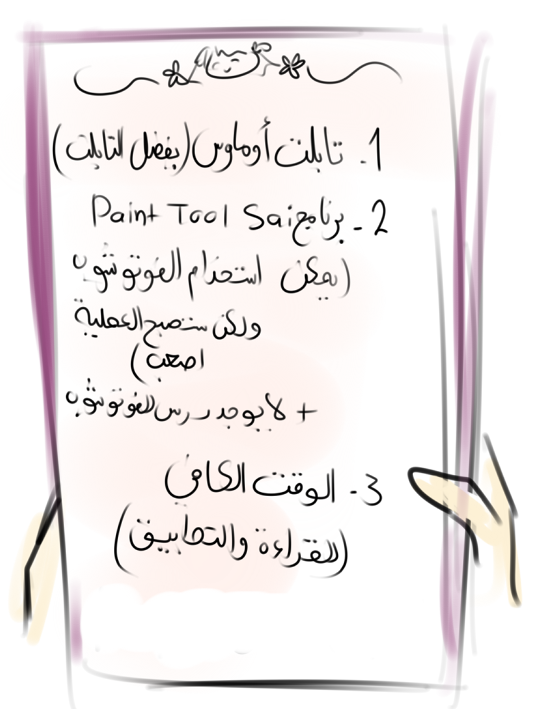 1. تابلت أو ماوس (يفضل التابلت)
2- برنامج Paint Tool Sai
(يمكن استخدام الفوتوشوب
ولكن ستصبح العملية
اصعب)
+ لا يوجد درس للفوتوشوب
3- الوقت الكافي
(للقراءة والتطبيق)